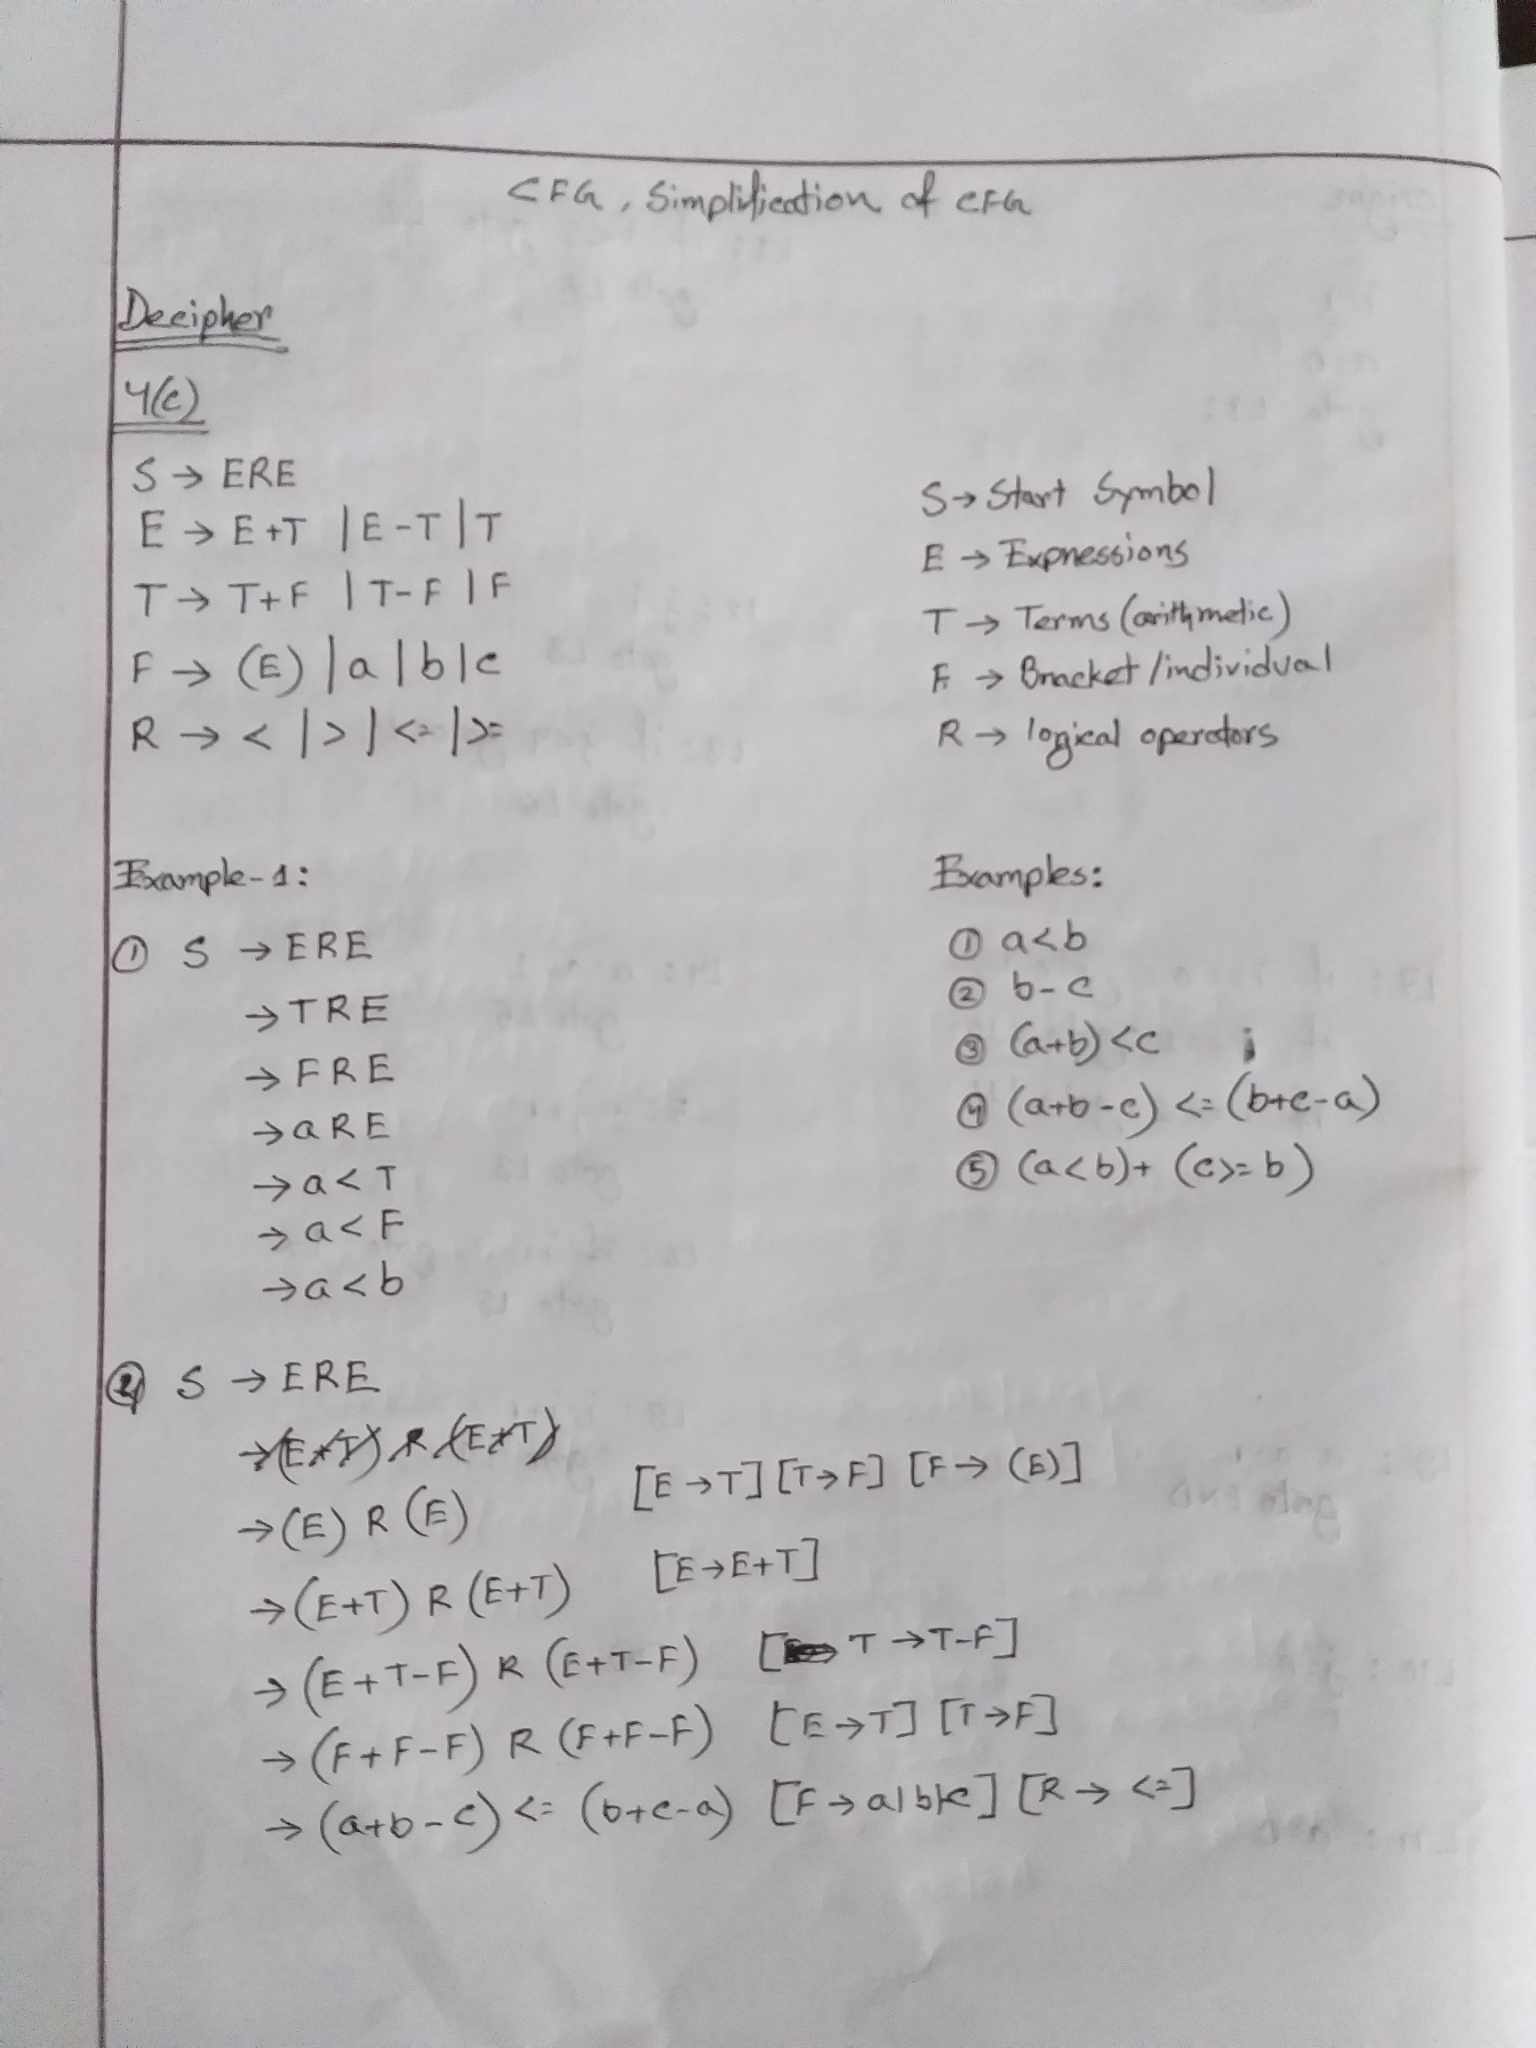 CFG, Simplification of CFG
Decipher
4(c)
S → ERE
E → E+T | E-T | T
T → T+F | T-F | F
F → (E) | a | b | c
R → < | > | <= | >=
S → Start Symbol
E → Expressions
T → Terms (arithmetic)
F → Bracket/individual
R → logical operators
Example-1:
① S → ERE
→ TRE
→ FRE
→ aRE
→ a<T
→ a<F
→ a<b
Examples:
① a<b
② b-c
③ (a+b)<c
④ (a+b-c) <= (b+c-a)
⑤ (a<b)+ (c>=b)
S → ERE
→ (E+T) R (E+T)
→ (E) R (E) [E→T] [T→F] [F→ (E)]
→ (E+T) R (E+T) [E→E+T]
→ (E+T-F) R (E+T-F) [T→T-F]
→ (F+F-F) R (F+F-F) [E→T] [T→F]
→ (a+b-c) <= (b+c-a) [F→a|b|c] [R→ <=]